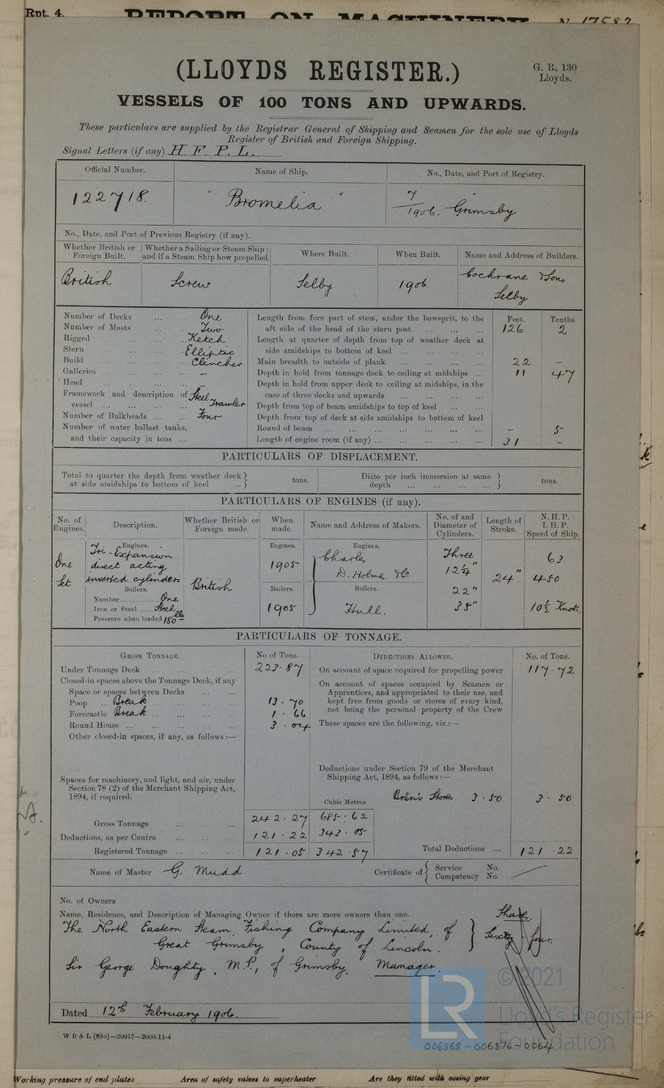 Rpt. 4.
REPORT ON MACHINERY
No. 17583
(LLOYDS REGISTER.)
G. R. 130
Lloyds.
VESSELS OF 100 TONS AND UPWARDS.
These particulars are supplied by the Registrar General of Shipping and Seamen for the sole use of Lloyds
Register of British and Foreign Shipping.
Signal Letters (if any) H. F. P. L.
Official Number. Name of Ship. No., Date, and Port of Registry.
122718. "Bromelia" 7/1906. Grimsby
No., Date, and Port of Previous Registry (if any).
Whether British or Foreign Built. Whether a Sailing or Steam Ship; and if a Steam Ship how propelled. Where Built. When Built. Name and Address of Builders.
British Screw Selby 1906 Cochrane & Sons
Selby
Number of Decks ... ... One
Number of Masts ... ... Two
Rigged ... ... Ketch
Stern ... ... Elliptic
Build ... ... Clincher
Galleries ... ... –
Head ... ...
Framework and description of vessel ... ... Steel Trawler
Number of Bulkheads ... ... Four
Number of water ballast tanks,
and their capacity in tons ...
Feet. Tenths.
Length from fore part of stem, under the bowsprit, to the
aft side of the head of the stern post ... ... 126 2
Length at quarter of depth from top of weather deck at
side amidships to bottom of keel ... ...
Main breadth to outside of plank ... ... 22 –
Depth in hold from tonnage deck to ceiling at midships ... 11 47
Depth in hold from upper deck to ceiling at midships, in the
case of three decks and upwards ... ...
Depth from top of beam amidships to top of keel ...
Depth from top of deck at side amidships to bottom of keel
Round of beam ... ... – 5
Length of engine room (if any) ... ... 31 –
PARTICULARS OF DISPLACEMENT.
Total to quarter the depth from weather deck
at side amidships to bottom of keel ... } tons.
Ditto per inch immersion at same
depth ... ... } tons.
PARTICULARS OF ENGINES (if any).
No. of Engines. Description. Whether British or Foreign made. When made. Name and Address of Makers. No. of and Diameter of Cylinders. Length of Stroke. N. H. P. I. H. P. Speed of Ship.
Engines. Engines. Engines.
One Set Tri-Expansion
direct acting
inverted cylinders
British 1905 Charles
D. Holmes & Co
Three 12¼" 22" 35" 24" 63
450
10½ Knots
Boilers. Boilers. Boilers.
Number ... One
Iron or Steel ... Steel
Pressure when loaded 180 lbs
1905 Hull.
PARTICULARS OF TONNAGE.
GROSS TONNAGE. No of Tons. DEDUCTIONS ALLOWED. No. of Tons.
Under Tonnage Deck ... ... 223.87
Closed-in spaces above the Tonnage Deck, if any
Space or spaces between Decks ...
Poop ... Break ... 13.70
Forecastle Break ... 1.66
Round House ... ... 3.04
Other closed-in spaces, if any, as follows:—
Spaces for machinery, and light, and air, under
Section 78 (2) of the Merchant Shipping Act,
1894, if required.
Cubic Metres
Gross Tonnage ... ... 242.27 685.62
Deductions, as per Contra ... ... 121.22 343.05
Registered Tonnage ... ... 121.05 342.57
On account of space required for propelling power 117.72
On account of spaces occupied by Seamen or
Apprentices, and appropriated to their use, and
kept free from goods or stores of every kind,
not being the personal property of the Crew
These spaces are the following, viz.:—
Deductions under Section 79 of the Merchant
Shipping Act, 1894, as follows:—
Bosn's Stores 3.50 3.50
Total Deductions ... 121.22
Name of Master G. Mudd
Certificate of { Service No.
Competency No.
No. of Owners
Name, Residence, and Description of Managing Owner if there are more owners than one.
The North Eastern Steam Fishing Company Limited, of
Great Grimsby, County of Lincoln.
Shares
Sixty four.
Sir George Doughty, M.P., of Grimsby, Manager.
Dated 12th February 1906.
W B & L (83s)—20917—2000-11-4
© 2021
LR
Lloyd's Register
Foundation
006868-006876-0064
Working pressure of end plates Area of safety valves to superheater Are they fitted with easing gear